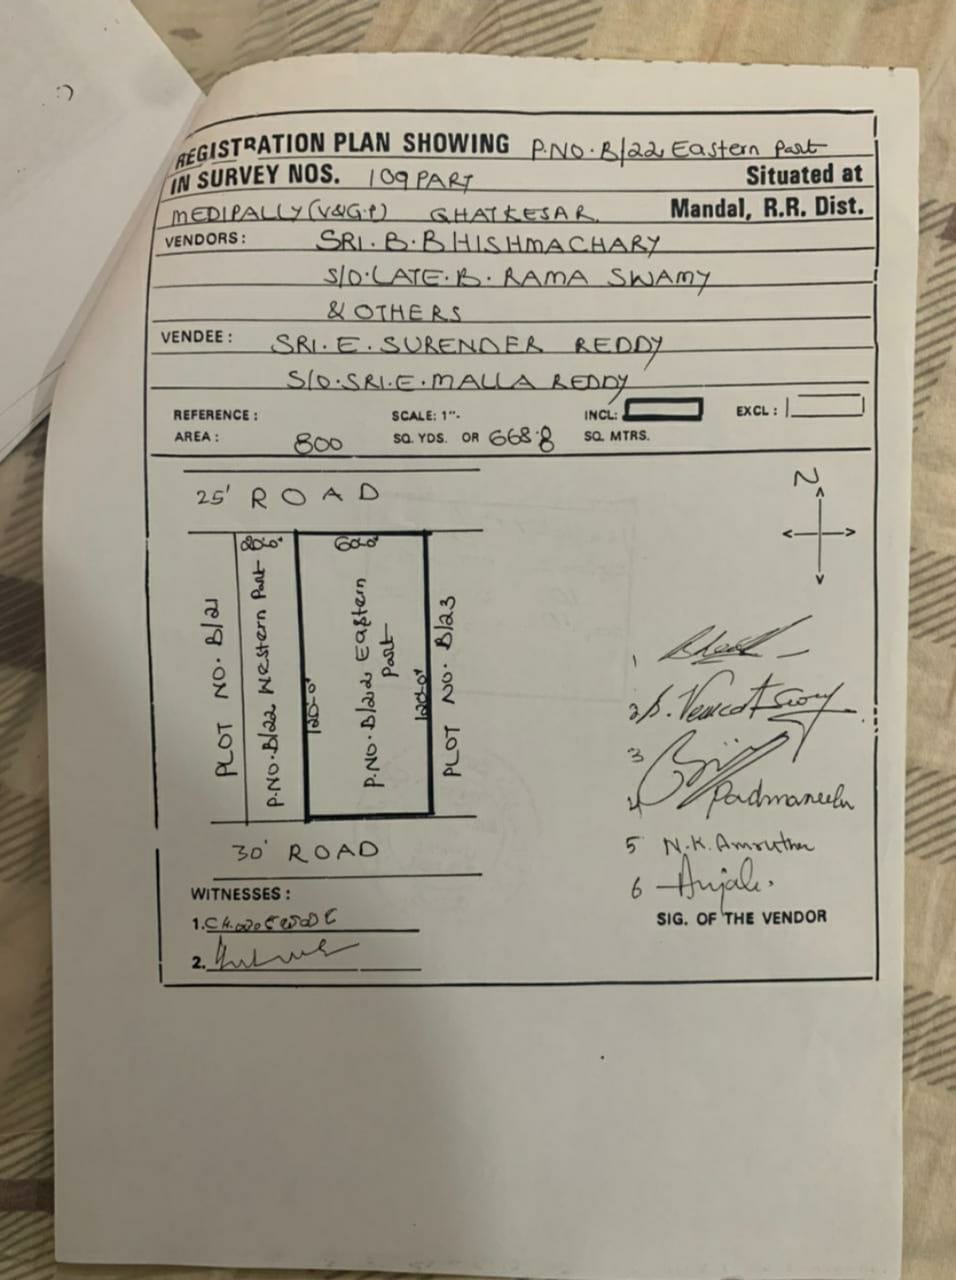 REGISTRATION PLAN SHOWING P.NO.B/22 Eastern Part
IN SURVEY NOS. 109 PART Situated at
MEDIPALLY (V&G.P) GHATKESAR Mandal, R.R. Dist.
VENDORS: SRI. B. BHISHMACHARY
S/O. LATE. B. RAMA SWAMY
& OTHERS
VENDEE: SRI. E. SURENDER REDDY
S/O. SRI. E. MALLA REDDY
REFERENCE: SCALE: 1". INCL: EXCL:
AREA: 800 SQ. YDS. OR 668.8 SQ. MTRS.
N
25' ROAD
60-0'
PLOT NO. B/21
P.NO. B/22 Western Part
120-0'
P.NO. B/22 Eastern
Part
120-0'
PLOT NO. B/23
30' ROAD
1
2
3
4 Padmaneela
5 N.K. Amrutha
6 Anjali.
SIG. OF THE VENDOR
WITNESSES:
1.
2.